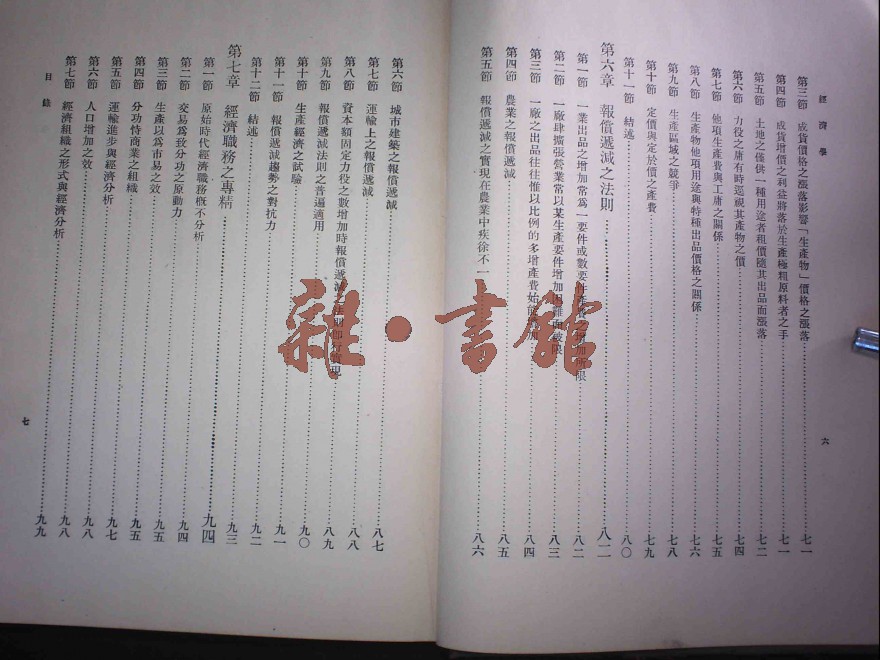 經濟學
第三節 成貨價格之漲落影響「生產物」價格之漲落……七一
第四節 成貨增價之利益將落於生產極粗原料者之手……七一
第五節 土地之僅供一種用途者租價隨其出品而漲落……七二
第六節 力役之庸有時逕視其產物之價……七四
第七節 他項生產費與工庸之關係……七五
第八節 生產物他項用途與特種出品價格之關係……七六
第九節 生產區域之競爭……七八
第十節 定價與定於價之產費……七九
第十一節 結述……八〇
第六章 報償遞減之法則……八二
第一節 一業出品之增加常為一要件或數要件產費之增加所限……八二
第二節 一廠肆擴張營業常以某生產要件增加困難而被限……八三
第三節 一廠之出品往往惟以比例的多增產費始能增加……八四
第四節 農業之報償遞減……八五
第五節 報償遞減之實現在農業中疾徐不一……八六
六
第六節 城市建築之報償遞減……八七
第七節 運輸上之報償遞減……八八
第八節 資本額固定力役之數增加時報償遞減之法則即行實現……八九
第九節 報償遞減法則之普遍適用……九〇
第十節 生產經濟之試驗……九一
第十一節 報償遞減趨勢之對抗力……九二
第十二節 結述……九三
第七章 經濟職務之專精……九四
第一節 原始時代經濟職務概不分析……九四
第二節 交易為致分功之原動力……九五
第三節 生產以為市易之效……九五
第四節 分功恃商業之組織……九七
第五節 運輸進步與經濟分析……九八
第六節 人口增加之效……九八
第七節 經濟組織之形式與經濟分析……九九
目錄
七
雜·書館